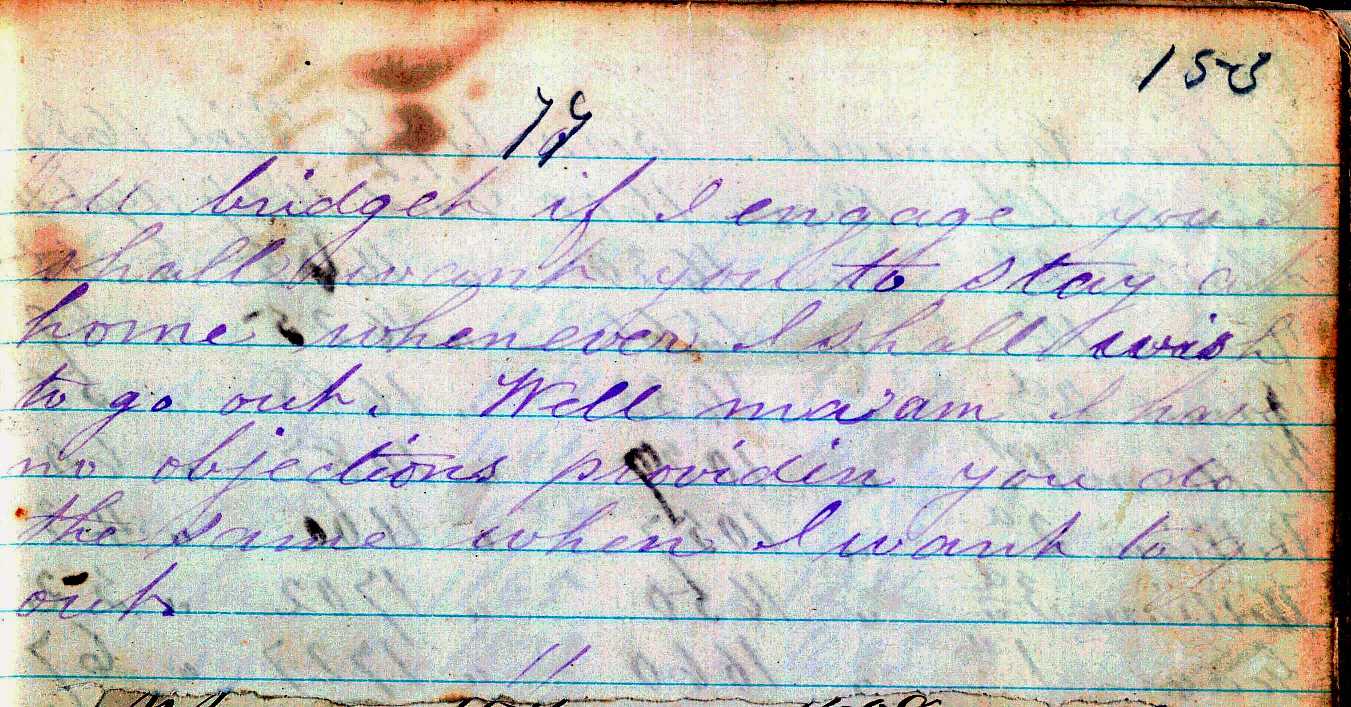 153
77
Well bridget if I engage you I
shall want you to stay at
home whenever I shall wish
to go out. Well ma'am I have
no objections providin you do
the same when I want to go
out.
11